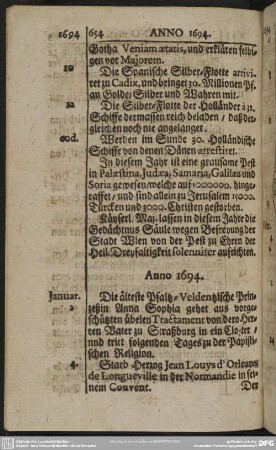 1694 654 ANNO 1694.
Gotha Veniam ætatis, und erklären selbi-
gen vor Majorem.
10 Die Spanische Silber-Flotte arrivi-
ret zu Cadix, und bringet 30. Millionen Pf.
an Golde, Silber und Wahren mit.
22 Die Silber-Flotte der Holländer à 21.
Schiffe dermassen reich beladen / daß der-
gleichen noch nie angelanget.
eod. Werden im Sunde 30. Holländische
Schiffe von denen Dänen arrestiret.
In diesem Jahr ist eine grausame Pest
in Palæstina, Judæa, Samaria, Galilæa und
Soria gewesen/welche auf 1000000. hinge-
raffet / und sind allein zu Jerusalem 15000.
Türcken und 3000. Christen gestorben.
Käyserl. Maj. lassen in diesem Jahre die
Gedächtnus Säule wegen Befreyung der
Stadt Wien von der Pest zu Ehren der
Heil. Dreyfaltigkeit solenniter aufrichten.
Anno 1694.
Januar. Die älteste Pfaltz-Veldentzische Prin-
2 zeßin Anna Sophia gehet aus vorge-
schützten übelen Tractament von dero Her-
ren Vater zu Straßburg in ein Closter /
und tritt folgenden Tages zu der Papisti-
schen Religion.
4. Starb Hertzog Jean Louys d' Orleans
de Longueville in der Normandie in sei-
nem Convent.
Der